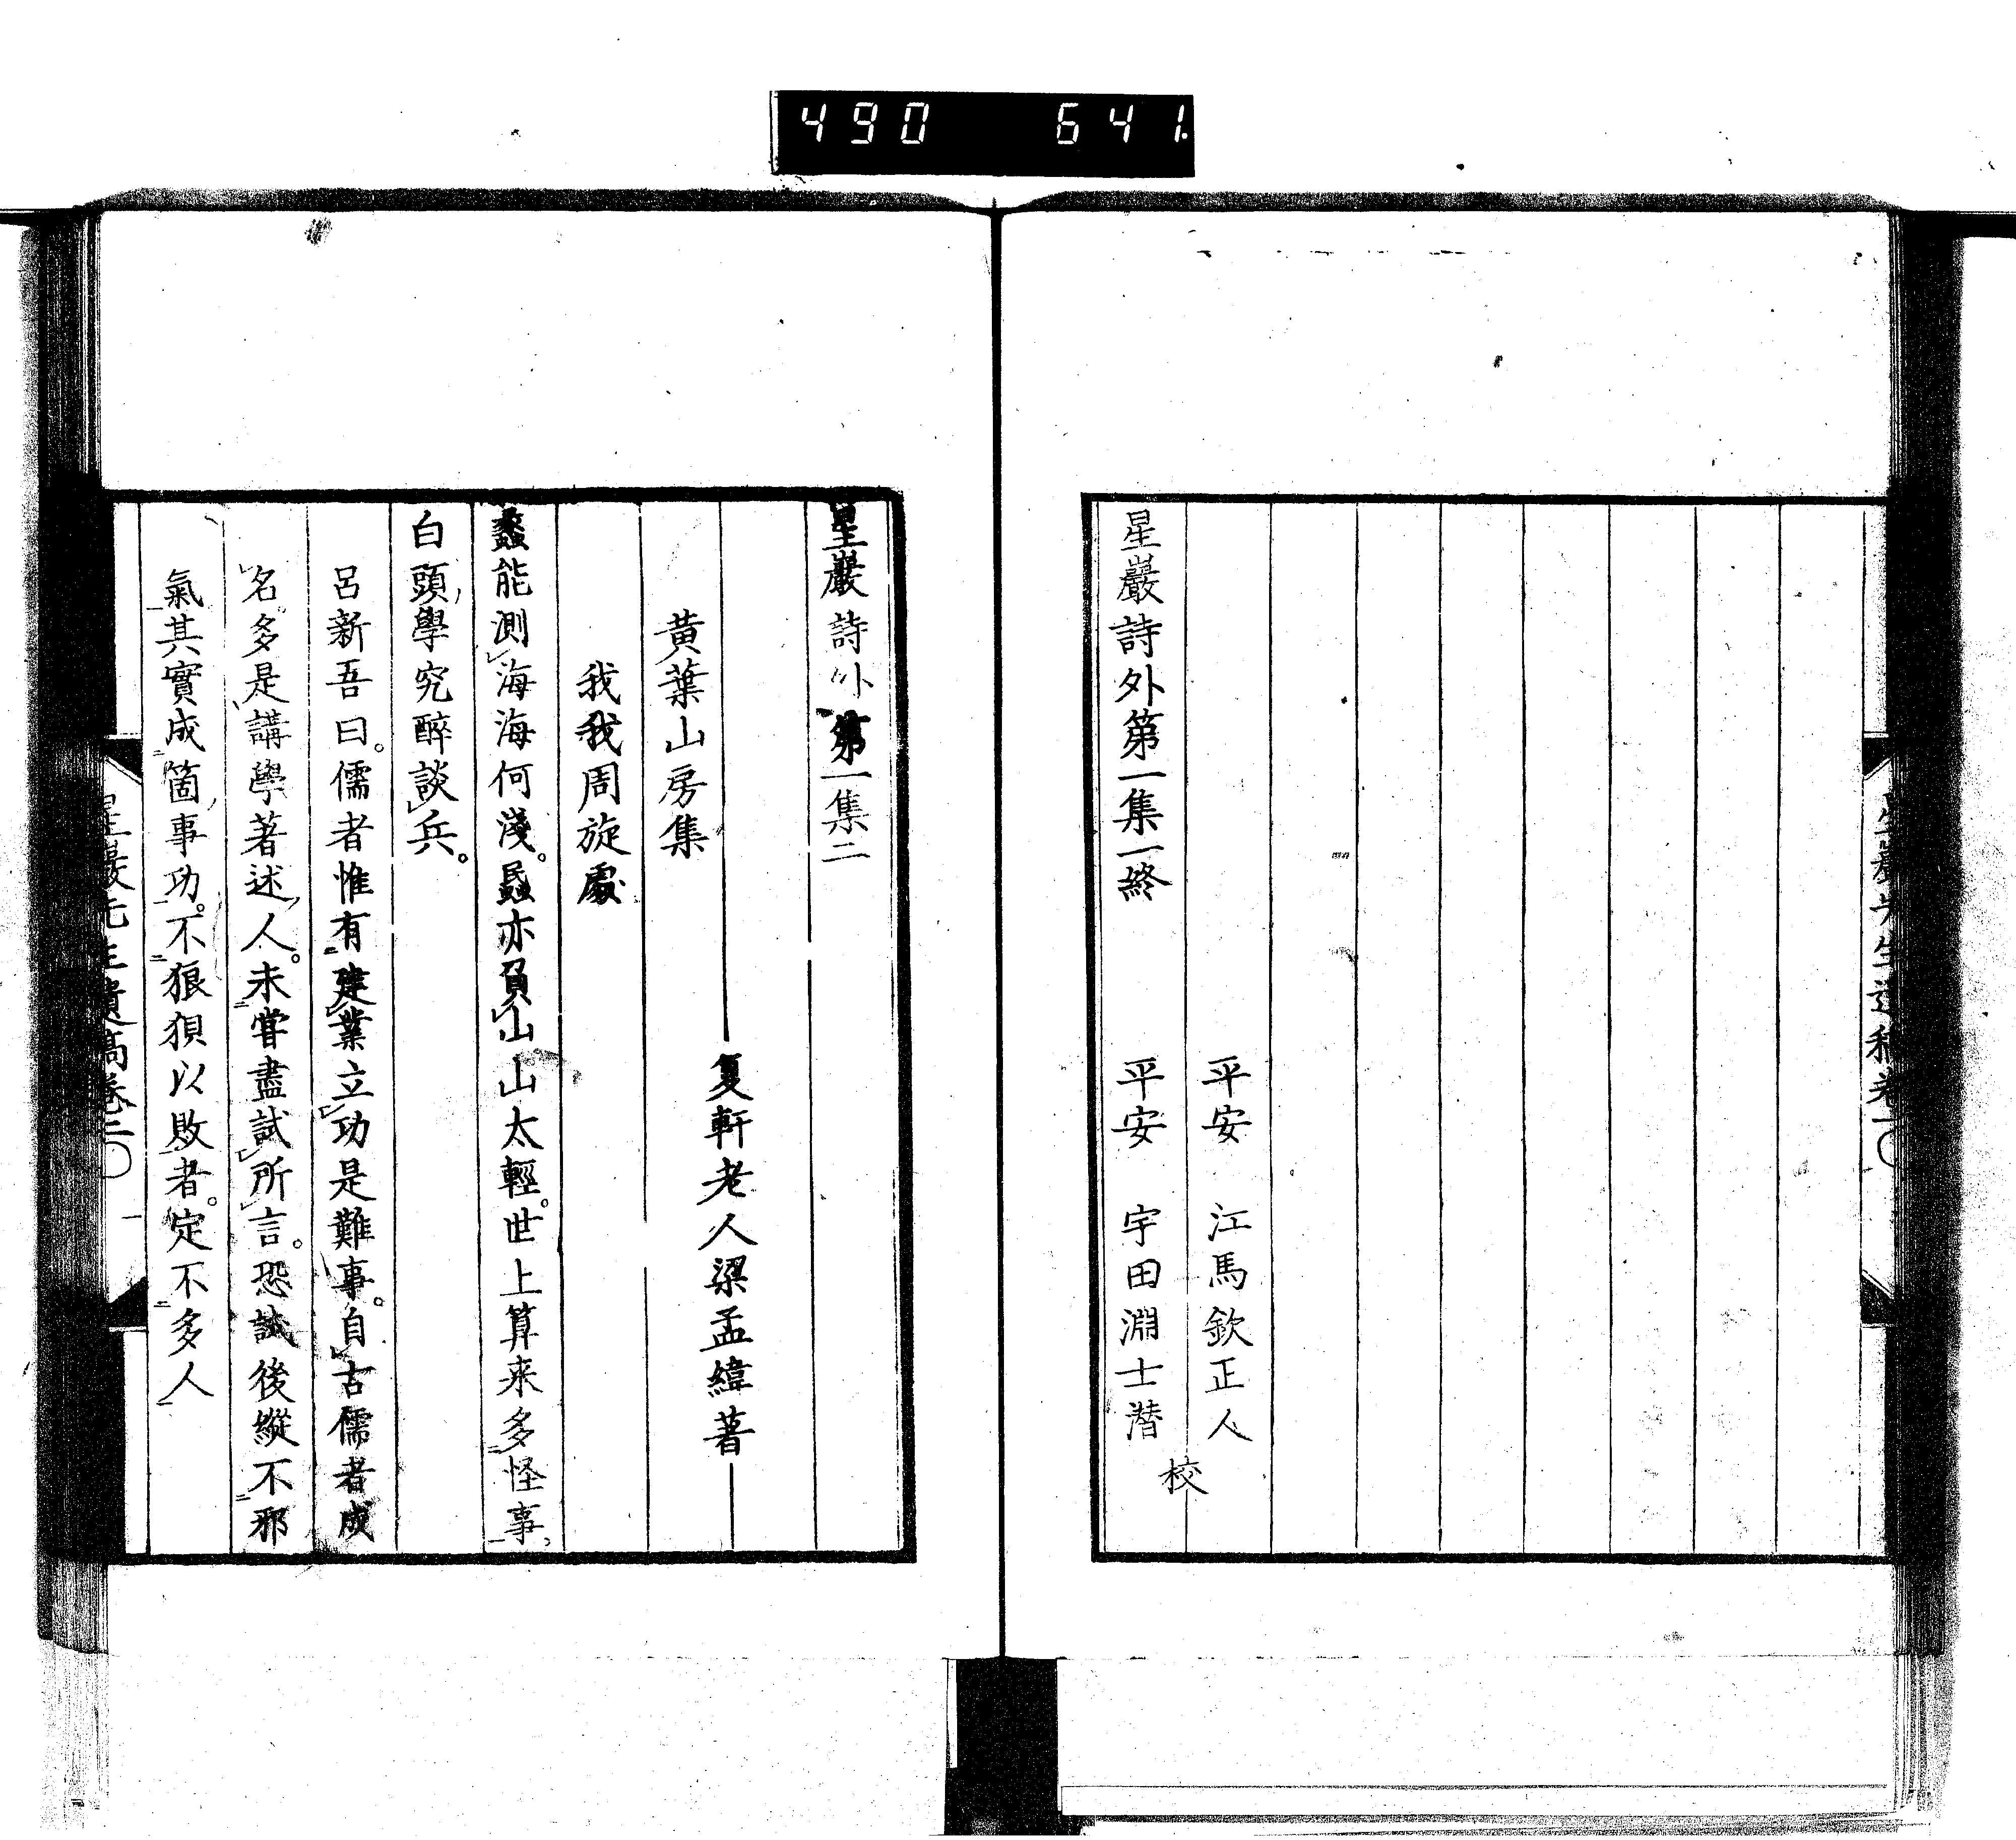 490 641.
平安 江馬欽正人
平安 宇田淵士潜
校
星巖詩外第一集一終
星巖先生遺稿卷一〇
星巖詩外第一集二
夐軒老人梁孟緯著
黄葉山房集
我我周旋處
蠡能測海海何淺。蝨亦負山山太輕。世上算来多怪事
白頭學究醉談兵。
呂新吾曰。儒者惟有建業立功是難事。自古儒者成
名多是講學著述人。未甞盡試所言。恐試後縱不邪
氣其實成箇事功。不狼狽以敗者。定不多人
星巖先生遺稿卷二〇 一